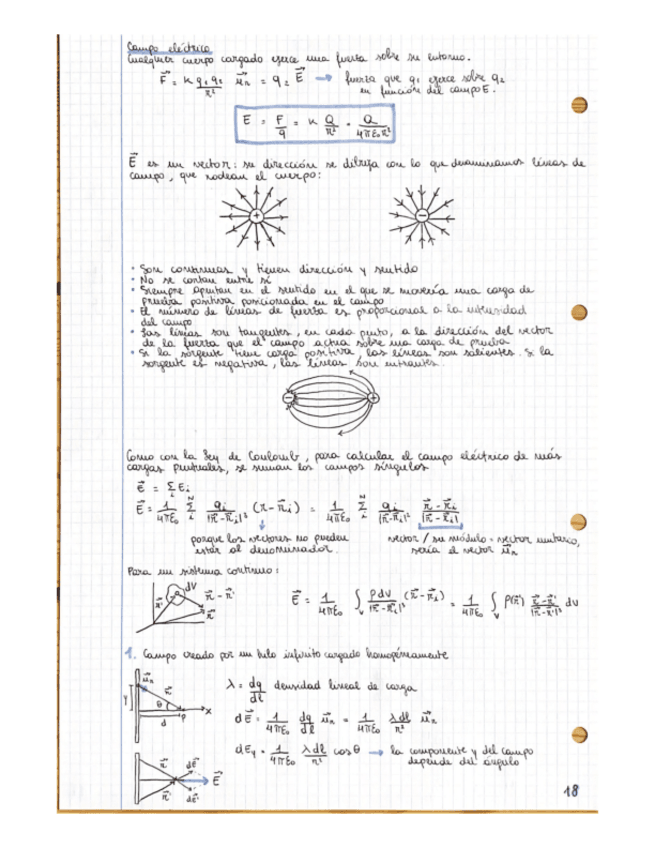 Campo eléctrico
Cualquier cuerpo cargado ejerce una fuerza sobre su entorno.
F⃗ = K q₁q₂/r² u⃗r = q₂ E⃗ → fuerza que q₁ ejerce sobre q₂
en función del campo E.
E = F/q = K Q/r² = Q/4πε₀r²
E⃗ es un vector: su dirección se dibuja con lo que denominamos líneas de
campo, que rodean el cuerpo:
+ −
• Son continuas y tienen dirección y sentido
• No se cortan entre sí
• Siempre apuntan en el sentido en el que se movería una carga de
prueba positiva posicionada en el campo
• El número de líneas de fuerza es proporcional a la intensidad
del campo
• Las líneas son tangentes, en cada punto, a la dirección del vector
de la fuerza que el campo actua sobre una carga de prueba
• Si la sorgente tiene carga positiva, las líneas son salientes. Si la
sorgente es negativa, las líneas son entrantes.
− +
Como con la Ley de Coulomb, para calcular el campo eléctrico de más
cargas puntuales, se suman los campos síngulos
E⃗ = Σᵢ Eᵢ
E⃗ = 1/4πε₀ Σᵢᴺ qᵢ/|r⃗-r⃗ᵢ|³ (r-r⃗ᵢ) = 1/4πε₀ Σᵢᴺ qᵢ/|r⃗-r⃗ᵢ|² r⃗-r⃗ᵢ/|r⃗-r⃗ᵢ|
porque los vectores no pueden vector / su módulo = vector unitario,
estar al denominador. sería el vector u⃗r
Para un sistema continuo:
dV r⃗' r⃗-r⃗' r⃗
E⃗ = 1/4πε₀ ∫ᵥ ρdV/|r⃗-r⃗ᵢ|³ (r⃗-r⃗ᵢ) = 1/4πε₀ ∫ᵥ ρ(r⃗') r⃗-r⃗'/|r⃗-r⃗'|³ dV
1. Campo creado por un hilo infinito cargado homogéneamente
u⃗r r⃗ y θ P x d
λ = dq/dl densidad lineal de carga
dE⃗ = 1/4πε₀ dq/dl u⃗r = 1/4πε₀ λdl/r² u⃗r
dEy = 1/4πε₀ λdl/r² cosθ → la componente y del campo
depende del ángulo
r⃗ dE⃗ E⃗
r⃗' dE⃗'
18